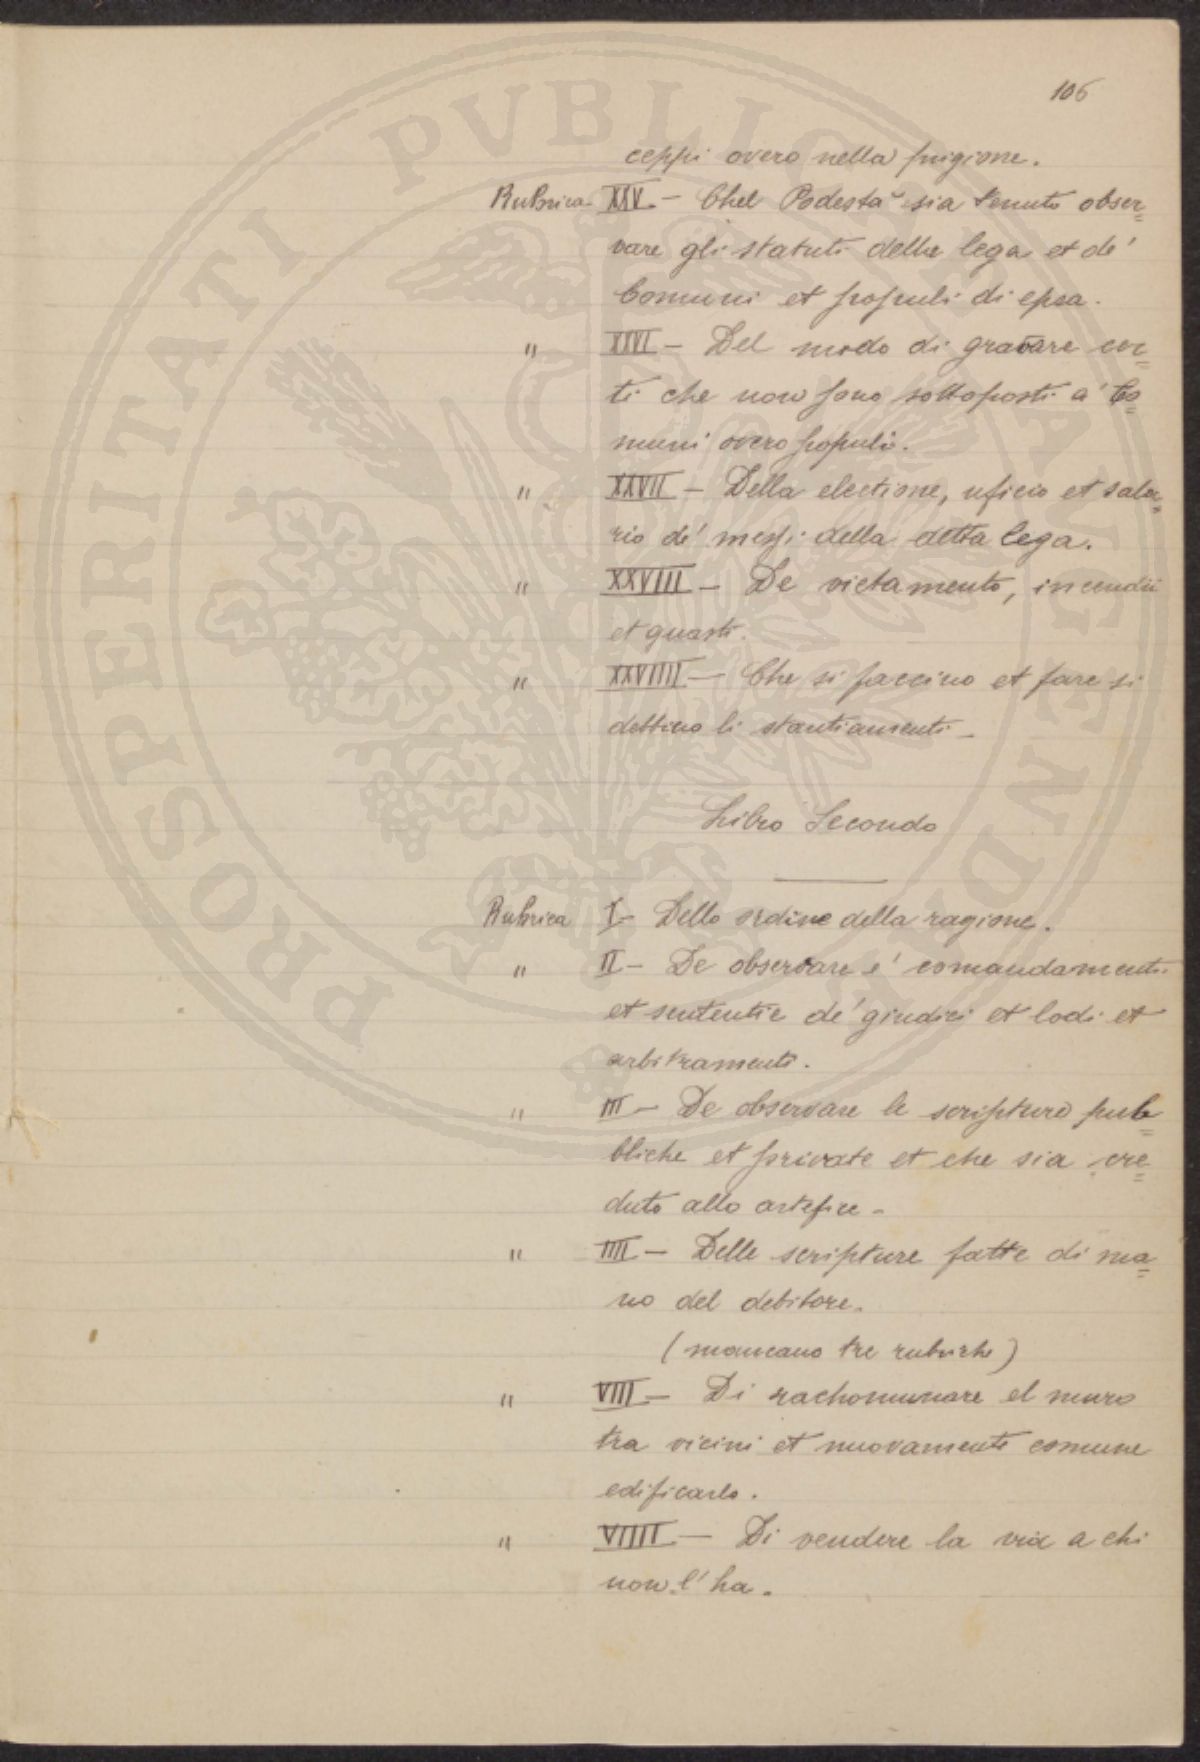 106
ceppi overo nella prigione.
Rubrica XXV - Chel Podestà sia tenuto obser=
vare gli statuti della lega et de'
Comuni et populi di epsa.
" XXVI - Del modo di gravare cer=
ti che non sono sottoposti a' Co=
muni overo populi.
" XXVII - Della electione, uficio et sala=
rio de' messi della detta lega.
" XXVIII - De vietamento, incendii
et guasti.
" XXVIIII - Che si faccino et fare si
debbino li stantiamenti -
Libro Secondo
Rubrica I - Dello ordine della ragione.
" II - De observare e' comandamenti
et sententie de' giudici et lodi et
arbitramenti.
" III - De observare le scripture pub=
bliche et private et che sia cre=
duto allo artefice -
" IIII - Delle scripture fatte di ma=
no del debitore.
(mancano tre rubriche)
" VIII - Di rachomunare el muro
tra vicini et nuovamente comune
edificarlo.
" VIIII - Di vendere la via a chi
non l'ha.
PROSPERITATI PVBLICAE AVGENDAE